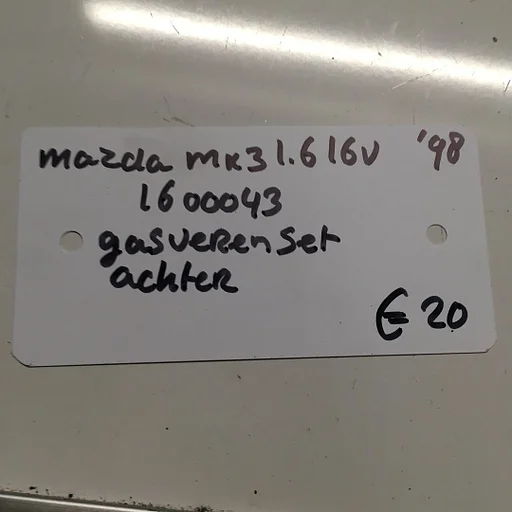 mazda mx3 1.6 16v '98
1600043
gasverenset
achter
€ 20